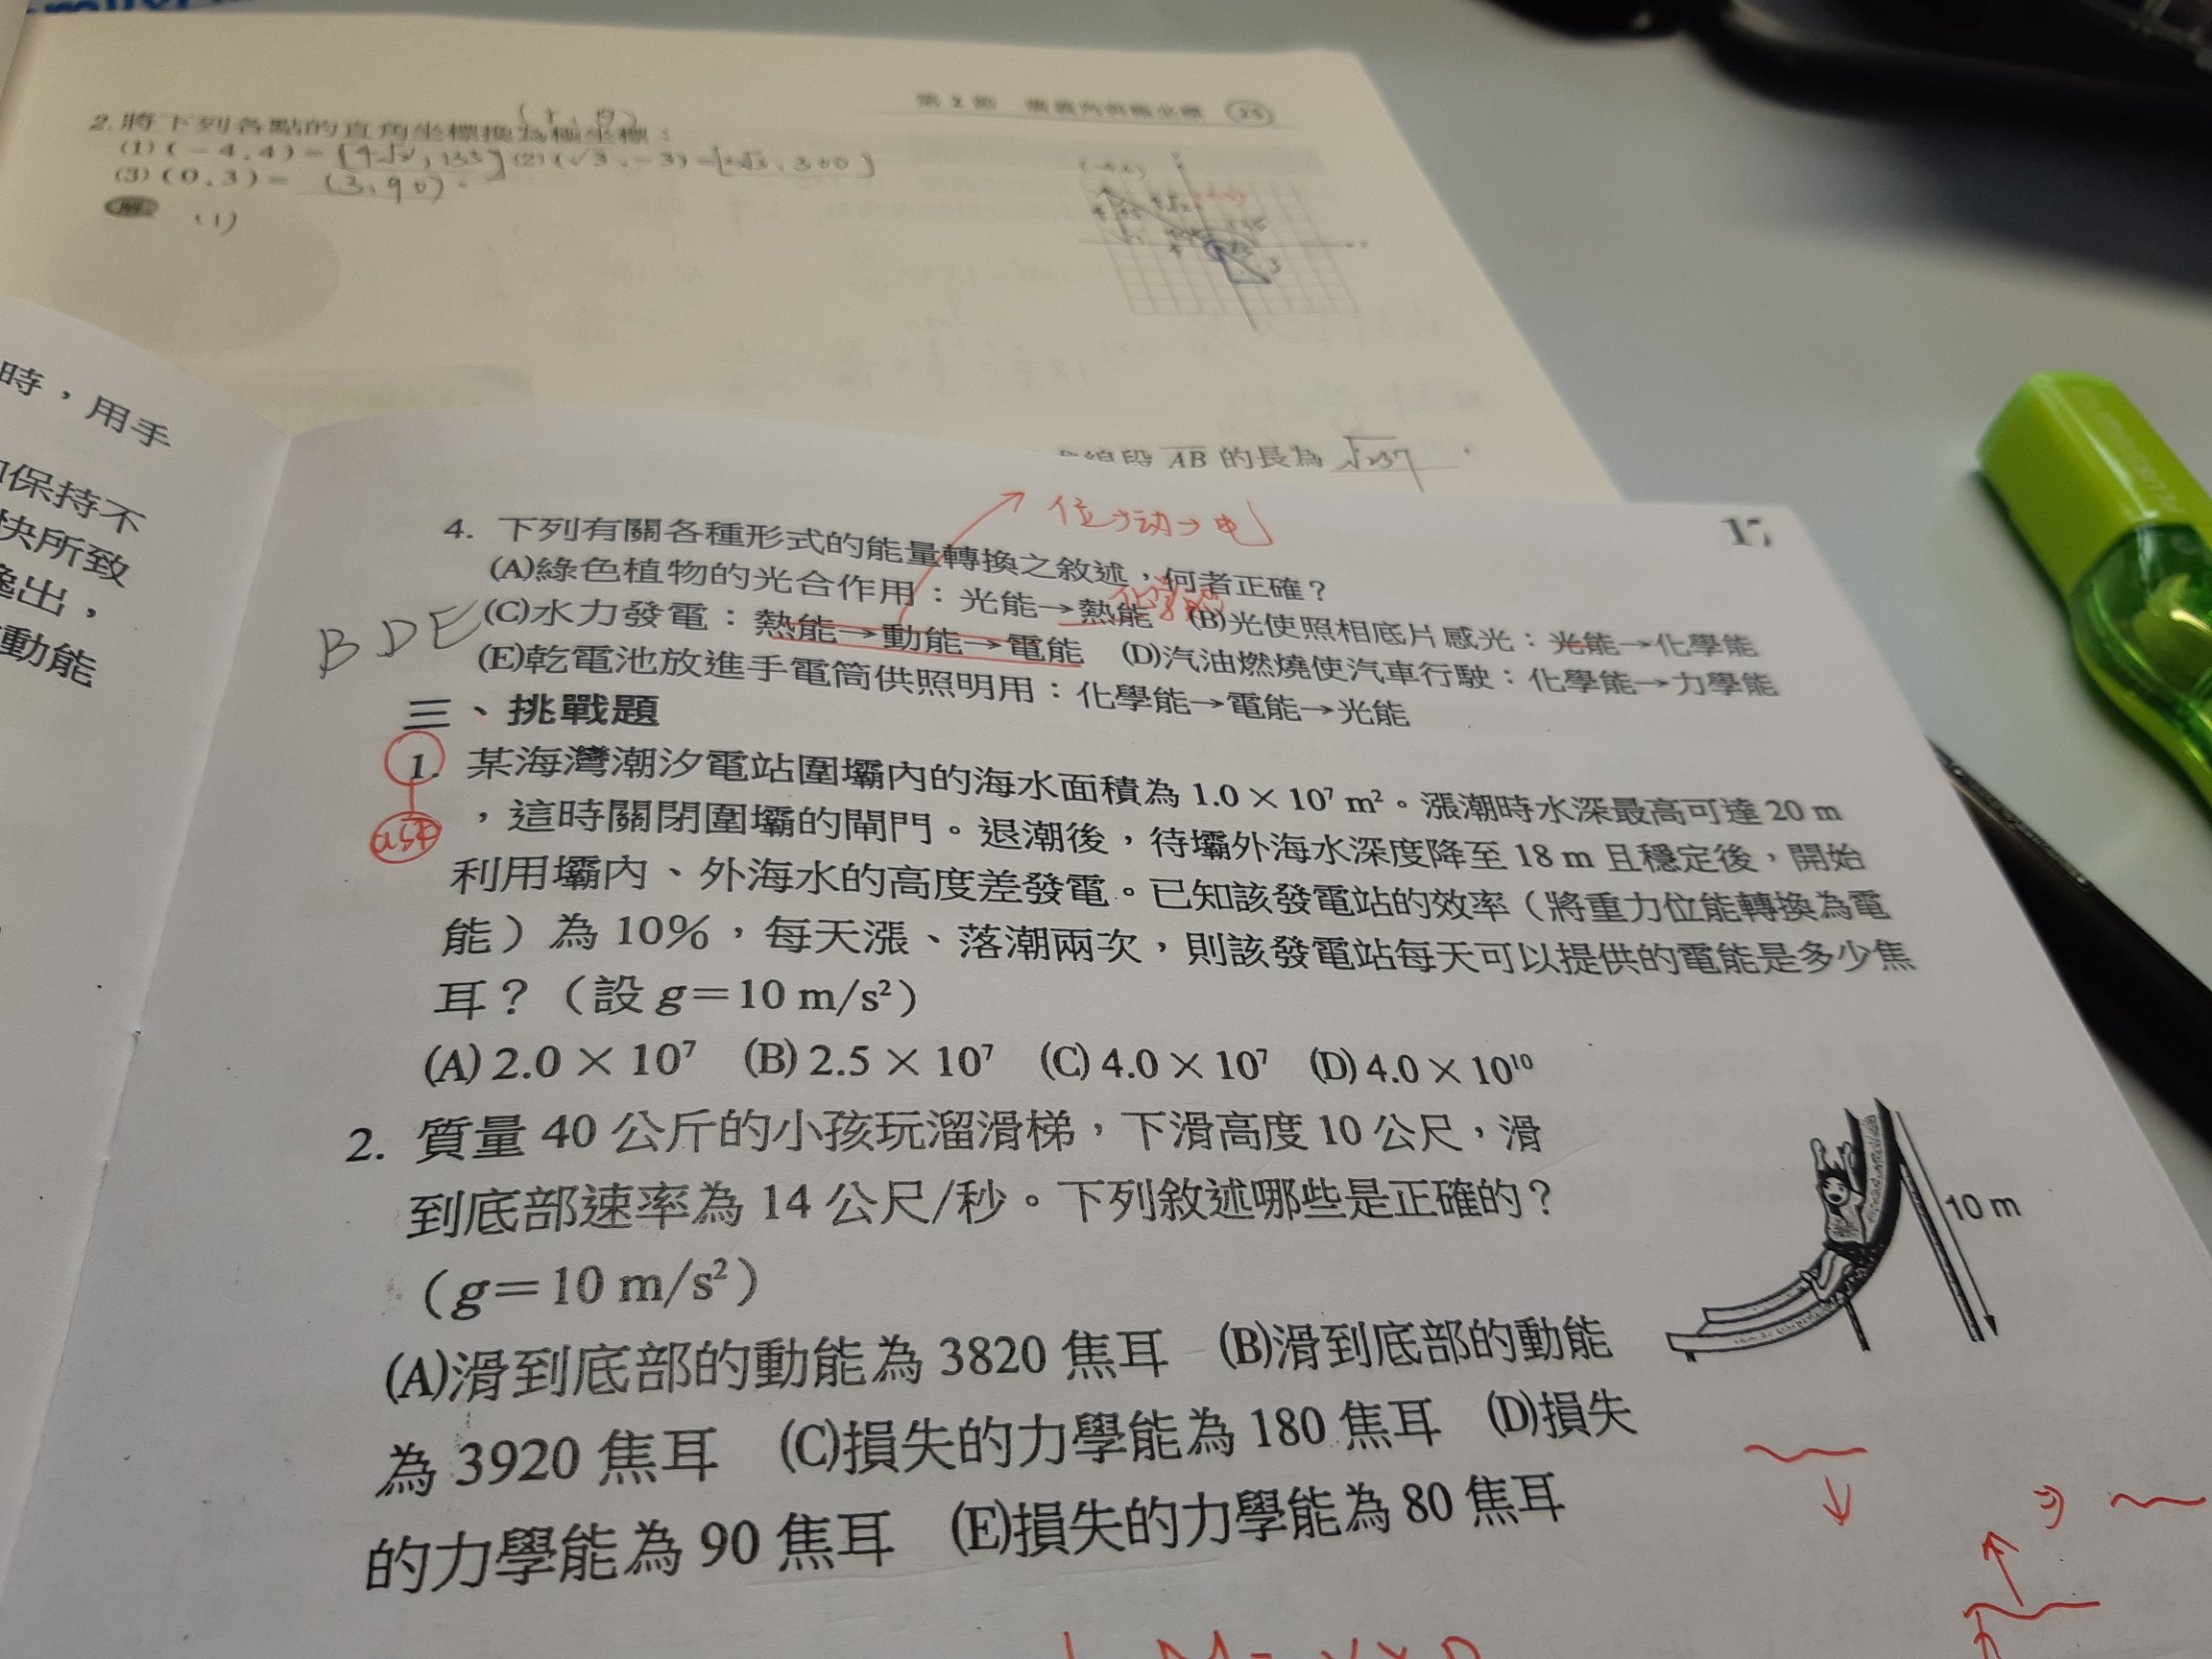 第2節
2.將下列各點的直角坐標換為極坐標：
(1)(−4,4)=[4√2, 135] (2)(√3,−3)=[2√3, 300]
(3)(0,3)= (3,90)。
解 (1)
時，用手
保持不
所致
出，
動能
線段 AB 的長為 √37
位→动→电
17
4. 下列有關各種形式的能量轉換之敘述，何者正確？
(A)綠色植物的光合作用：光能→熱能 (B)光使照相底片感光：光能→化學能
BDE
(C)水力發電：熱能→動能→電能 (D)汽油燃燒使汽車行駛：化學能→力學能
(E)乾電池放進手電筒供照明用：化學能→電能→光能
三、挑戰題
1. 某海灣潮汐電站圍壩內的海水面積為 1.0 × 10⁷ m²。漲潮時水深最高可達 20 m
，這時關閉圍壩的閘門。退潮後，待壩外海水深度降至 18 m 且穩定後，開始
利用壩內、外海水的高度差發電。已知該發電站的效率（將重力位能轉換為電
能）為 10%，每天漲、落潮兩次，則該發電站每天可以提供的電能是多少焦
耳？（設 g＝10 m/s²）
(A) 2.0 × 10⁷ (B) 2.5 × 10⁷ (C) 4.0 × 10⁷ (D) 4.0 × 10¹⁰
2. 質量 40 公斤的小孩玩溜滑梯，下滑高度 10 公尺，滑
到底部速率為 14 公尺/秒。下列敘述哪些是正確的？
（g＝10 m/s²）
10 m
(A)滑到底部的動能為 3820 焦耳 (B)滑到底部的動能
為 3920 焦耳 (C)損失的力學能為 180 焦耳 (D)損失
的力學能為 90 焦耳 (E)損失的力學能為 80 焦耳